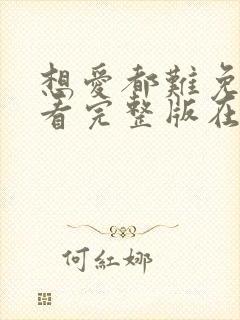 想愛都難免
看完整版在
何紅娜